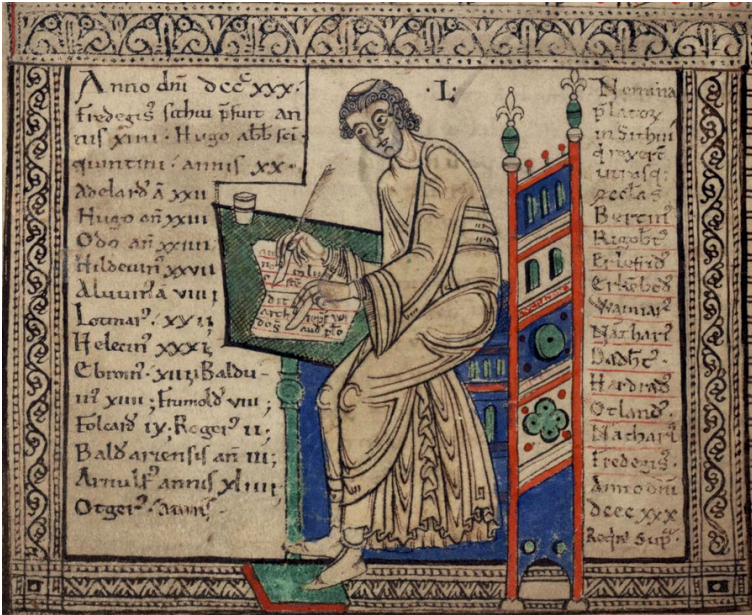 Anno dñi dccc xxx.
Fredegisꝰ sithiu p̄fuit an
nis xiiii. Hugo abb̄ sci
quintini annis xx.
Adelardꝰ ā xxii
Hugo añ xxiii
Odo añ xxiiii
Hildeuinꝰ xxvii
Aluuinꝰ ā viiii
Lotmarꝰ. xvii
Helecinꝰ xxxi;
Ebroinꝰ. xiii; Baldu
inꝰ xiiii; Frumoldꝰ viii;
Folcardꝰ ix; Rogerꝰ ii;
Baldꝰ ariensis añ iii;
Arnulfꝰ annis xliiii
Otgerꝰ. annis
.L.
Nomina
p̄latorꝝ
in Sithiu
utrasq;
Bertinꝰ
Rigob̄tꝰ
Erlefridꝰ
Erkēbodꝰ
Waimarꝰ
Nātharꝰ
Dadb̄tꝰ.
Hardradꝰ
Otlandꝰ.
Nātharꝰ
Fredegisꝰ.
Anno dñi
dccc xxx